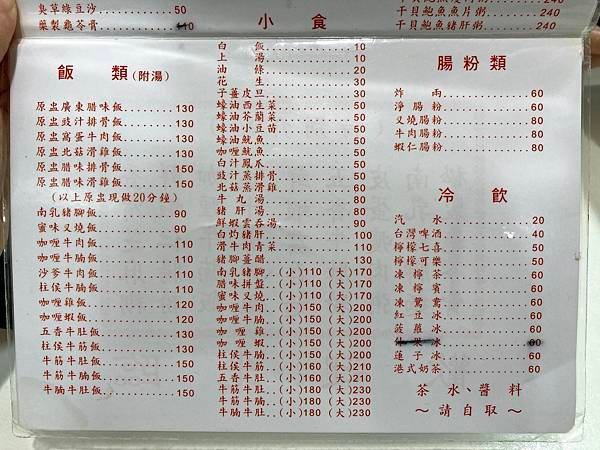 臭草綠豆沙..........50
藥製龜苓骨..........110
干貝鮑魚魚片粥..........240
干貝鮑魚豬肝粥..........240
飯 類(附湯)
原盅廣東腊味飯..........130
原盅豉汁排骨飯..........130
原盅窩蛋牛肉飯..........130
原盅北菇滑雞飯..........130
原盅腊味排骨飯..........150
原盅腊味滑雞飯..........150
(以上原盅現做20分鐘)
南乳豬腳飯..........90
蜜味叉燒飯..........90
咖喱牛肉飯..........110
咖喱牛腩飯..........110
沙爹牛肉飯..........110
柱侯牛腩飯..........110
咖喱雞飯..........120
咖喱蝦飯..........120
五香牛肚飯..........130
柱侯牛肚飯..........130
牛筋牛腩飯..........150
牛筋牛肚飯..........150
牛腩牛肚飯..........150
小 食
白 飯..........10
上 湯..........10
油 條..........20
花 生..........30
子薑皮旦..........30
蠔油西生菜..........50
蠔油芥蘭菜..........50
蠔油小豆苗..........50
蠔油魷魚..........50
咖喱魷魚..........50
白汁鳳爪..........50
豉汁蒸排骨..........50
北菇蒸滑雞..........60
牛丸湯..........80
豬肝湯..........80
鮮蝦雲吞湯..........90
白灼豬肝..........100
滑牛肉青菜..........110
豬腳薑醋..........130
南乳豬腳..(小)110 (大)170
腊味拼盤..(小)110 (大)170
蜜味叉燒..(小)110 (大)170
咖喱牛肉..(小)150 (大)200
咖喱牛腩..(小)150 (大)200
咖喱雞..(小)150 (大)200
咖喱蝦..(小)150 (大)200
柱侯牛腩..(小)150 (大)200
柱侯牛肚..(小)160 (大)210
五香牛肚..(小)160 (大)210
牛筋牛肚..(小)180 (大)230
牛筋牛腩..(小)180 (大)230
牛腩牛肚..(小)180 (大)230
腸粉類
炸 両..........60
淨腸粉..........60
叉燒腸粉..........80
牛肉腸粉..........80
蝦仁腸粉..........80
冷 飲
汽 水..........20
台灣啤酒..........40
檸檬七喜..........50
檸檬可樂..........50
凍檸茶..........60
凍檸賓..........60
凍鴛鴦..........60
紅豆冰..........60
菠蘿冰..........60
蓮子冰..........60
港式奶茶..........60
茶水、醬料
～請自取～